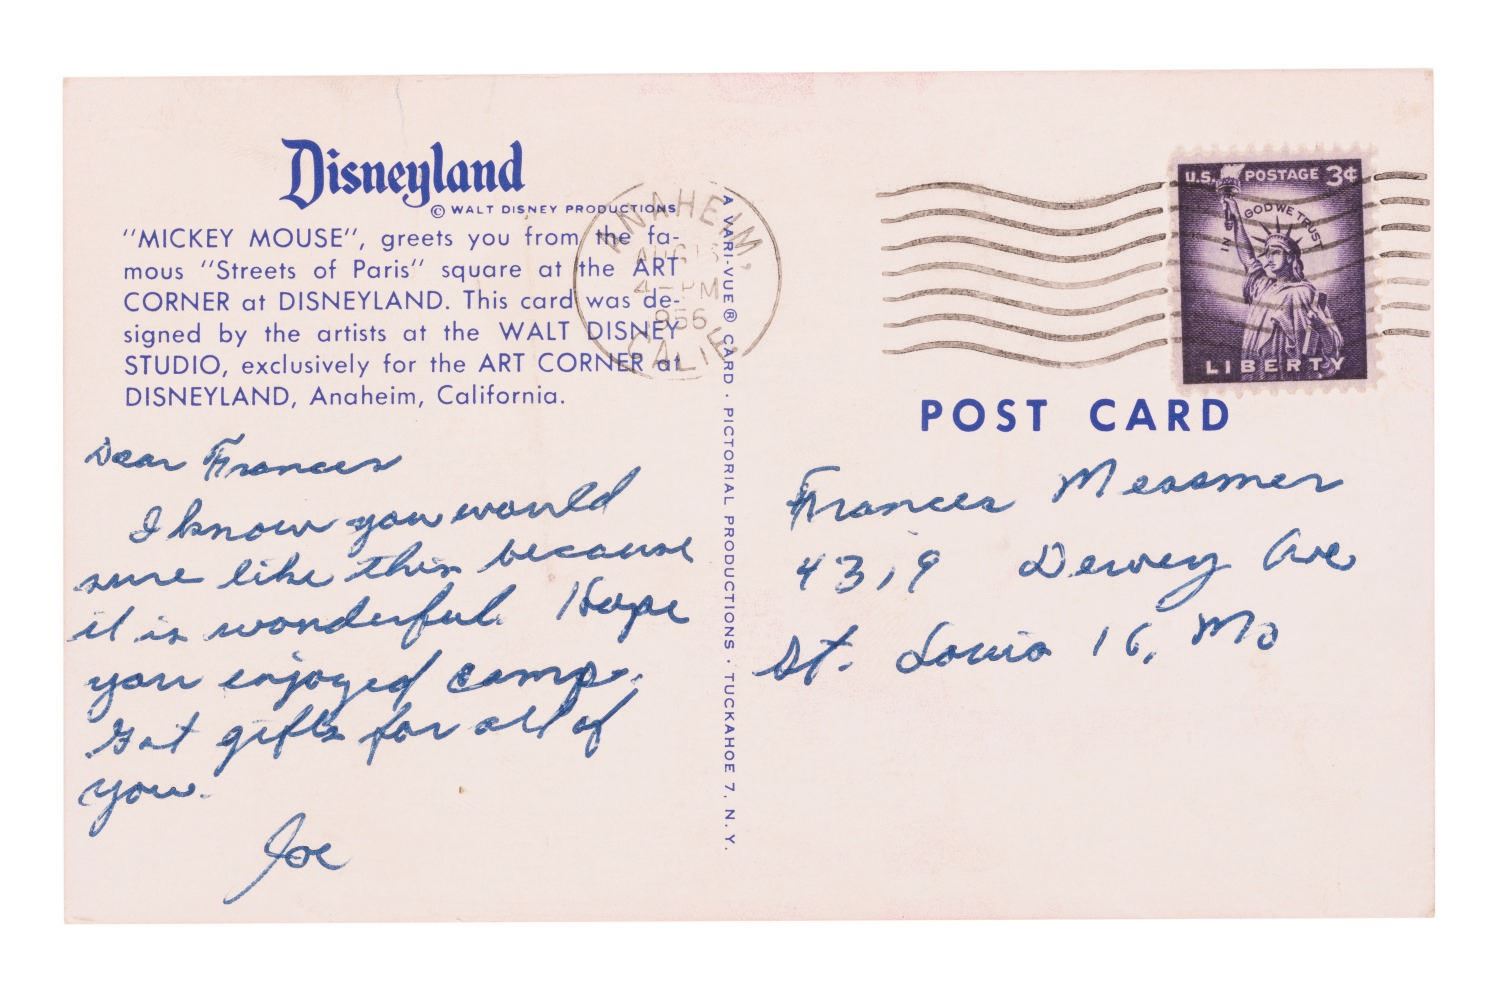 Disneyland
© WALT DISNEY PRODUCTIONS
"MICKEY MOUSE", greets you from the fa-
mous "Streets of Paris" square at the ART
CORNER at DISNEYLAND. This card was de-
signed by the artists at the WALT DISNEY
STUDIO, exclusively for the ART CORNER at
DISNEYLAND, Anaheim, California.
Dear Frances
I know you would
sure like this because
it is wonderful. Hope
you enjoyed camp.
Got gifts for all of
you.
Joe
A VARI-VUE® CARD · PICTORIAL PRODUCTIONS · TUCKAHOE 7, N. Y.
ANAHEIM,
AUG
4 - PM
956
CALIF.
U.S. POSTAGE 3¢
IN GOD WE TRUST
LIBERTY
POST CARD
Frances Messmer
4319 Dewey Ave
St. Louis 16, Mo